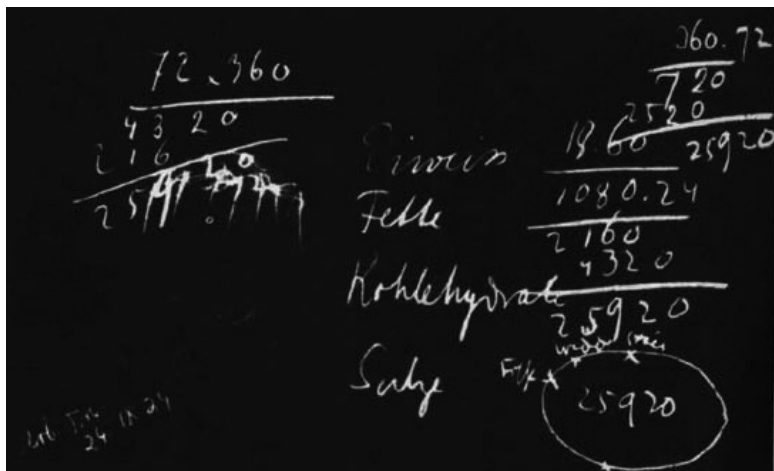 72 . 360
4320
216
25
360 . 72
720
2520
25920
Eiweiss
Fette
Kohlehydrate
Salze
18 . 60
1080 . 24
2160
4320
25920
25920
24 IX 24